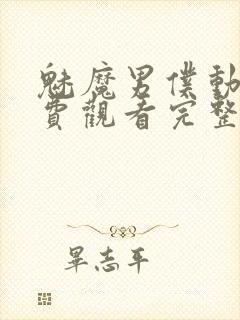 魅魔男僕動
費觀看完整
畢志平